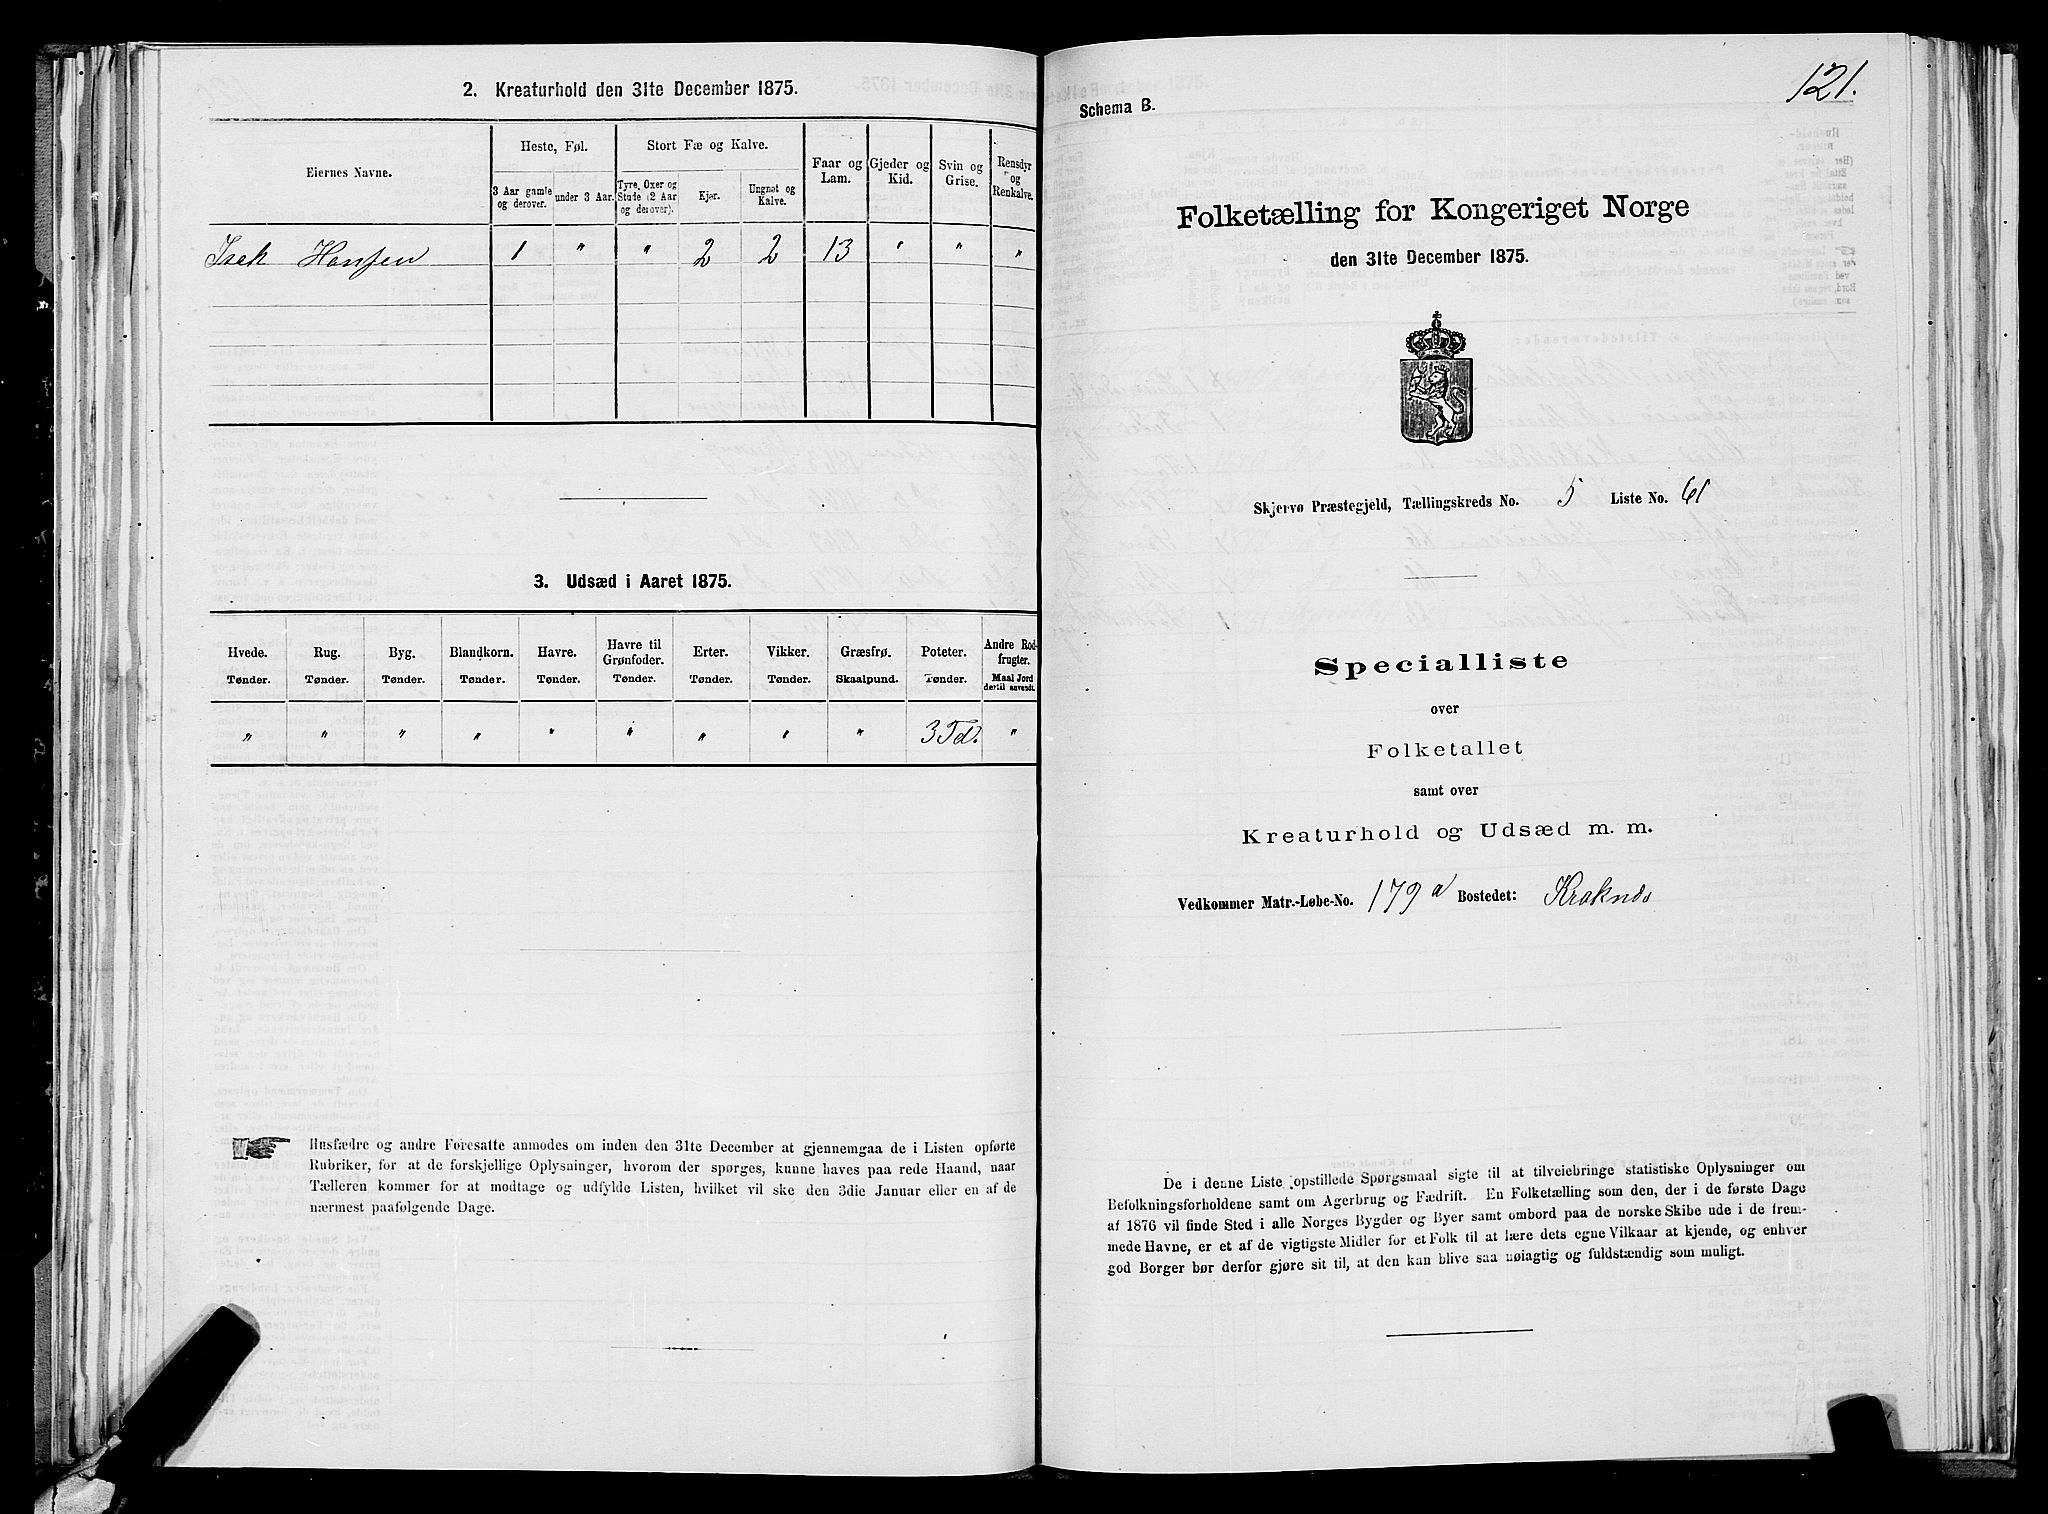 2. Kreaturhold den 31te December 1875.
Eiernes Navne.
Heste, Føl.
Stort Fæ og Kalve.
Faar og Lam.
Gjeder og Kid.
Svin og Grise.
Rensdyr og Renkalve.
3 Aar gamle og derover.
under 3 Aar.
Tyre, Oxer og Stude (2 Aar og derover).
Kjør.
Ungnøt og Kalve.
Isak Hansen 1 " " 2 2 13 " " "
3. Udsæd i Aaret 1875.
Hvede. Rug. Byg. Blandkorn. Havre. Havre til Grønfoder. Erter. Vikker. Græsfrø. Poteter. Andre Rodfrugter.
Tønder. Tønder. Tønder. Tønder. Tønder. Tønder. Tønder. Tønder. Skaalpund. Tønder. Maal Jord dertil anvendt.
" " " " " " " " " 3 Td. "
Husfædre og andre Foresatte anmodes om inden den 31te December at gjennemgaa de i Listen opførte
Rubriker, for at de forskjellige Oplysninger, hvorom der spørges, kunne haves paa rede Haand, naar
Tælleren kommer for at modtage og udfylde Listen, hvilket vil ske den 3die Januar eller en af de
nærmest paafølgende Dage.
121.
Schema B.
Folketælling for Kongeriget Norge
den 31te December 1875.
Skjervø Præstegjeld, Tællingskreds No. 5 Liste No. 61
Specialliste
over
Folketallet
samt over
Kreaturhold og Udsæd m. m.
Vedkommer Matr.-Løbe-No. 179 a Bostedet: Kraknæs
De i denne Liste opstillede Spørgsmaal sigte til at tilveiebringe statistiske Oplysninger om
Befolkningsforholdene samt om Agerbrug og Fædrift. En Folketælling som den, der i de første Dage
af 1876 vil finde Sted i alle Norges Bygder og Byer samt ombord paa de norske Skibe ude i de frem-
mede Havne, er et af de vigtigste Midler for et Folk til at lære dets egne Vilkaar at kjende, og enhver
god Borger bør derfor gjøre sit til, at den kan blive saa nøiagtig og fuldstændig som muligt.